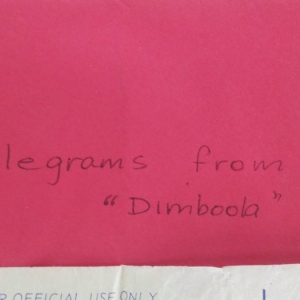 legrams from
"Dimboola"
R OFFICIAL USE ONLY